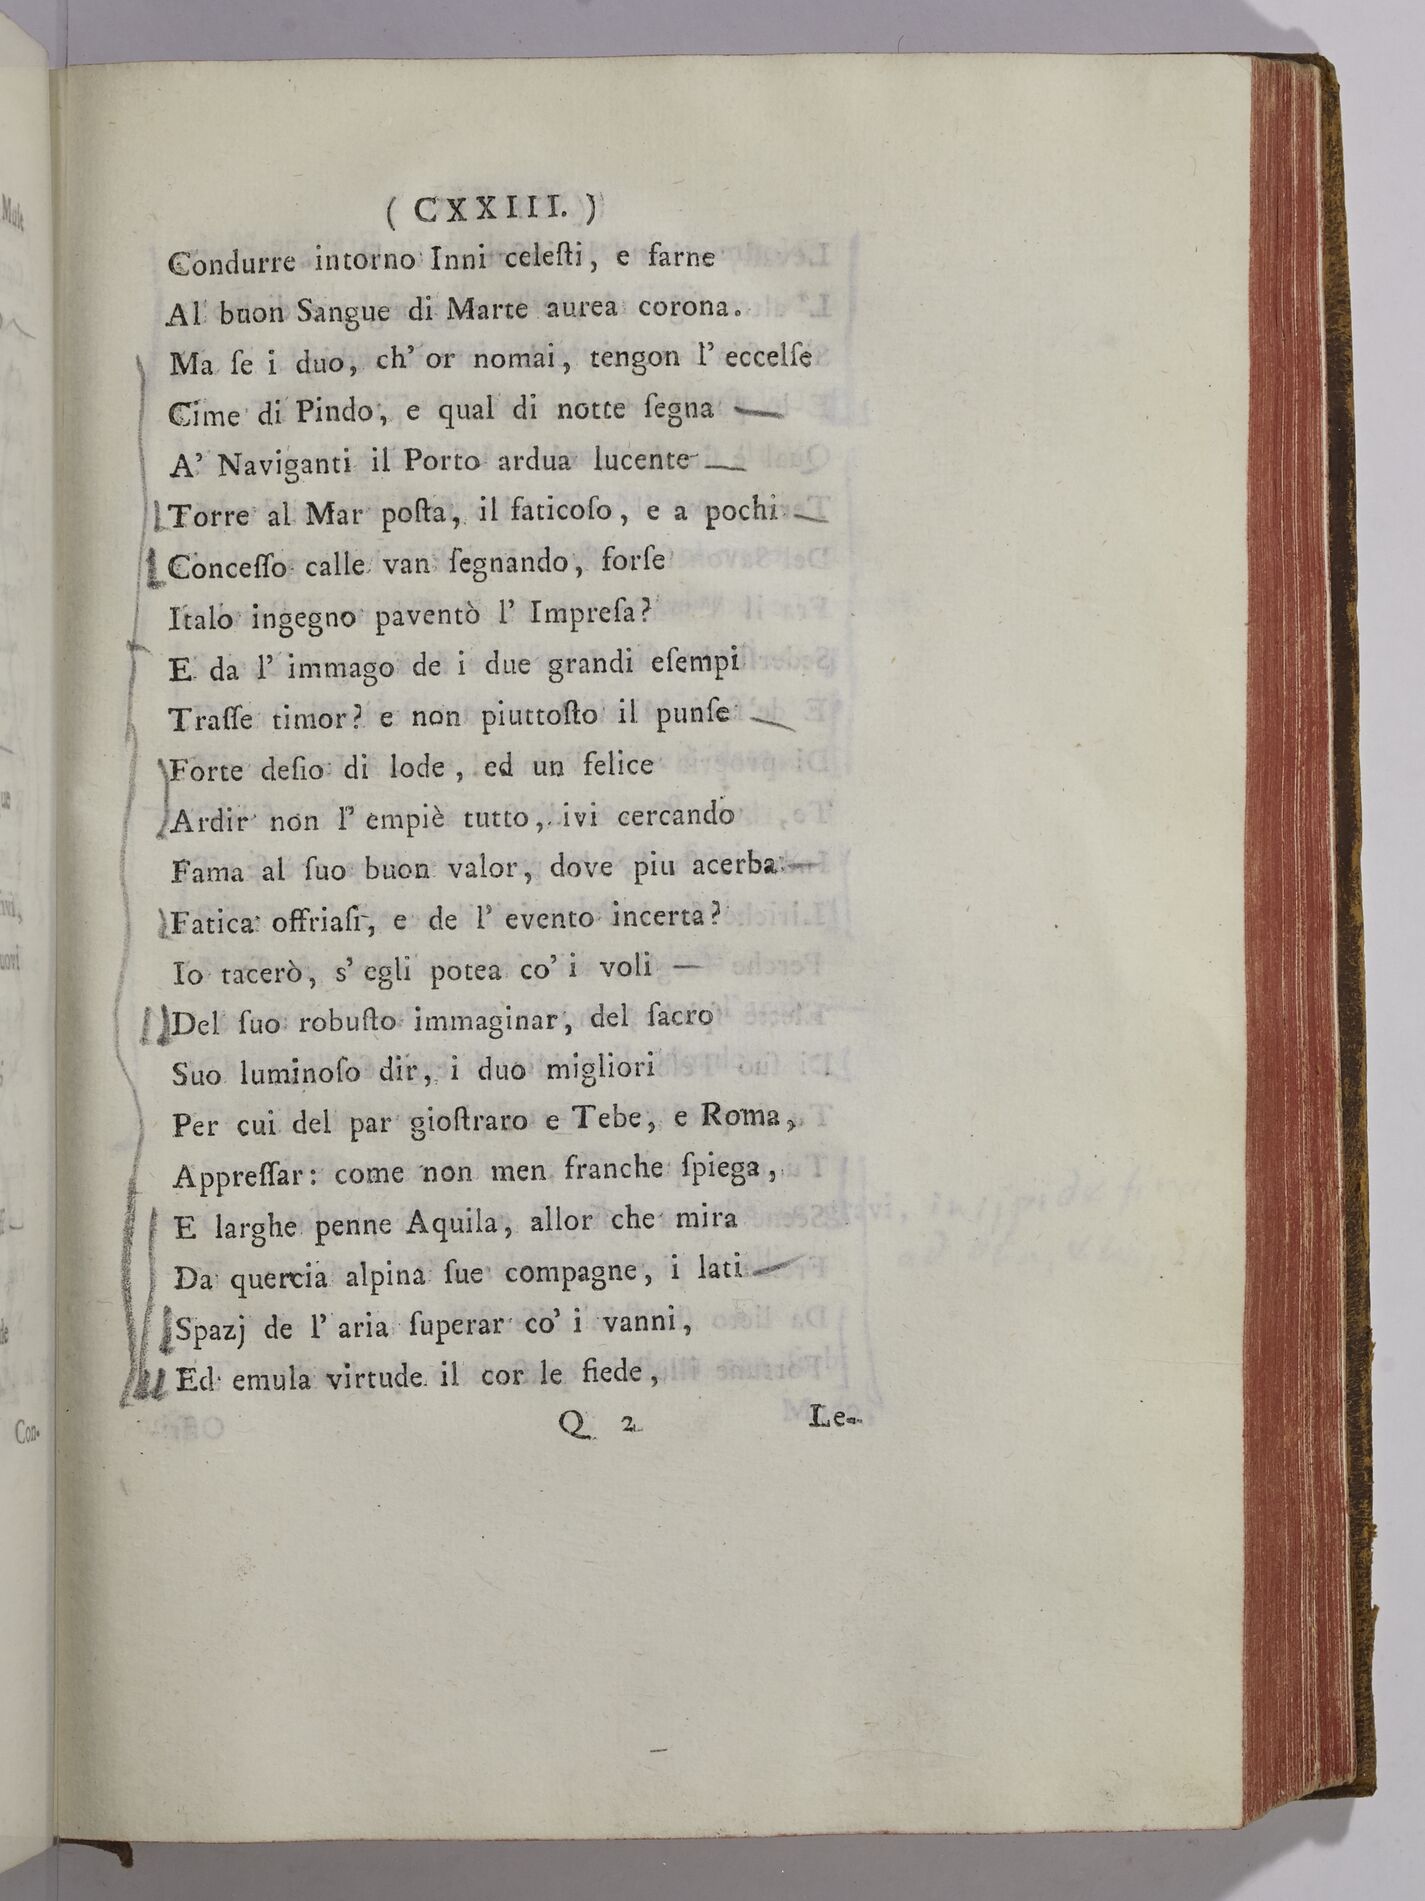 ( CXXIII. )
Condurre intorno Inni celeſti, e farne
Al buon Sangue di Marte aurea corona.
Ma ſe i duo, ch' or nomai, tengon l' eccelſe
Cime di Pindo, e qual di notte ſegna
A' Naviganti il Porto ardua lucente
Torre al Mar poſta, il faticoſo, e a pochi
Conceſſo calle van ſegnando, forſe
Italo ingegno paventò l' Impreſa?
E da l' immago de i due grandi eſempi
Traſſe timor? e non piuttoſto il punſe
Forte deſio di lode, ed un felice
Ardir non l' empiè tutto, ivi cercando
Fama al ſuo buon valor, dove piu acerba
Fatica offriaſi, e de l' evento incerta?
Io tacerò, s' egli potea co' i voli
Del ſuo robuſto immaginar, del ſacro
Suo luminoſo dir, i duo migliori
Per cui del par gioſtraro e Tebe, e Roma,
Appreſſar: come non men franche ſpiega,
E larghe penne Aquila, allor che mira
Da quercia alpina ſue compagne, i lati
Spazj de l' aria ſuperar co' i vanni,
Ed emula virtude il cor le fiede,
Q 2 Le-
Con-